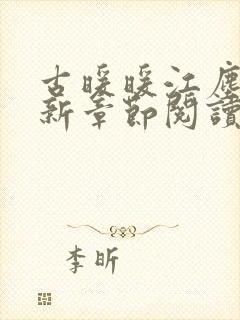 古暖暖江塵
新章節閱讀
李昕